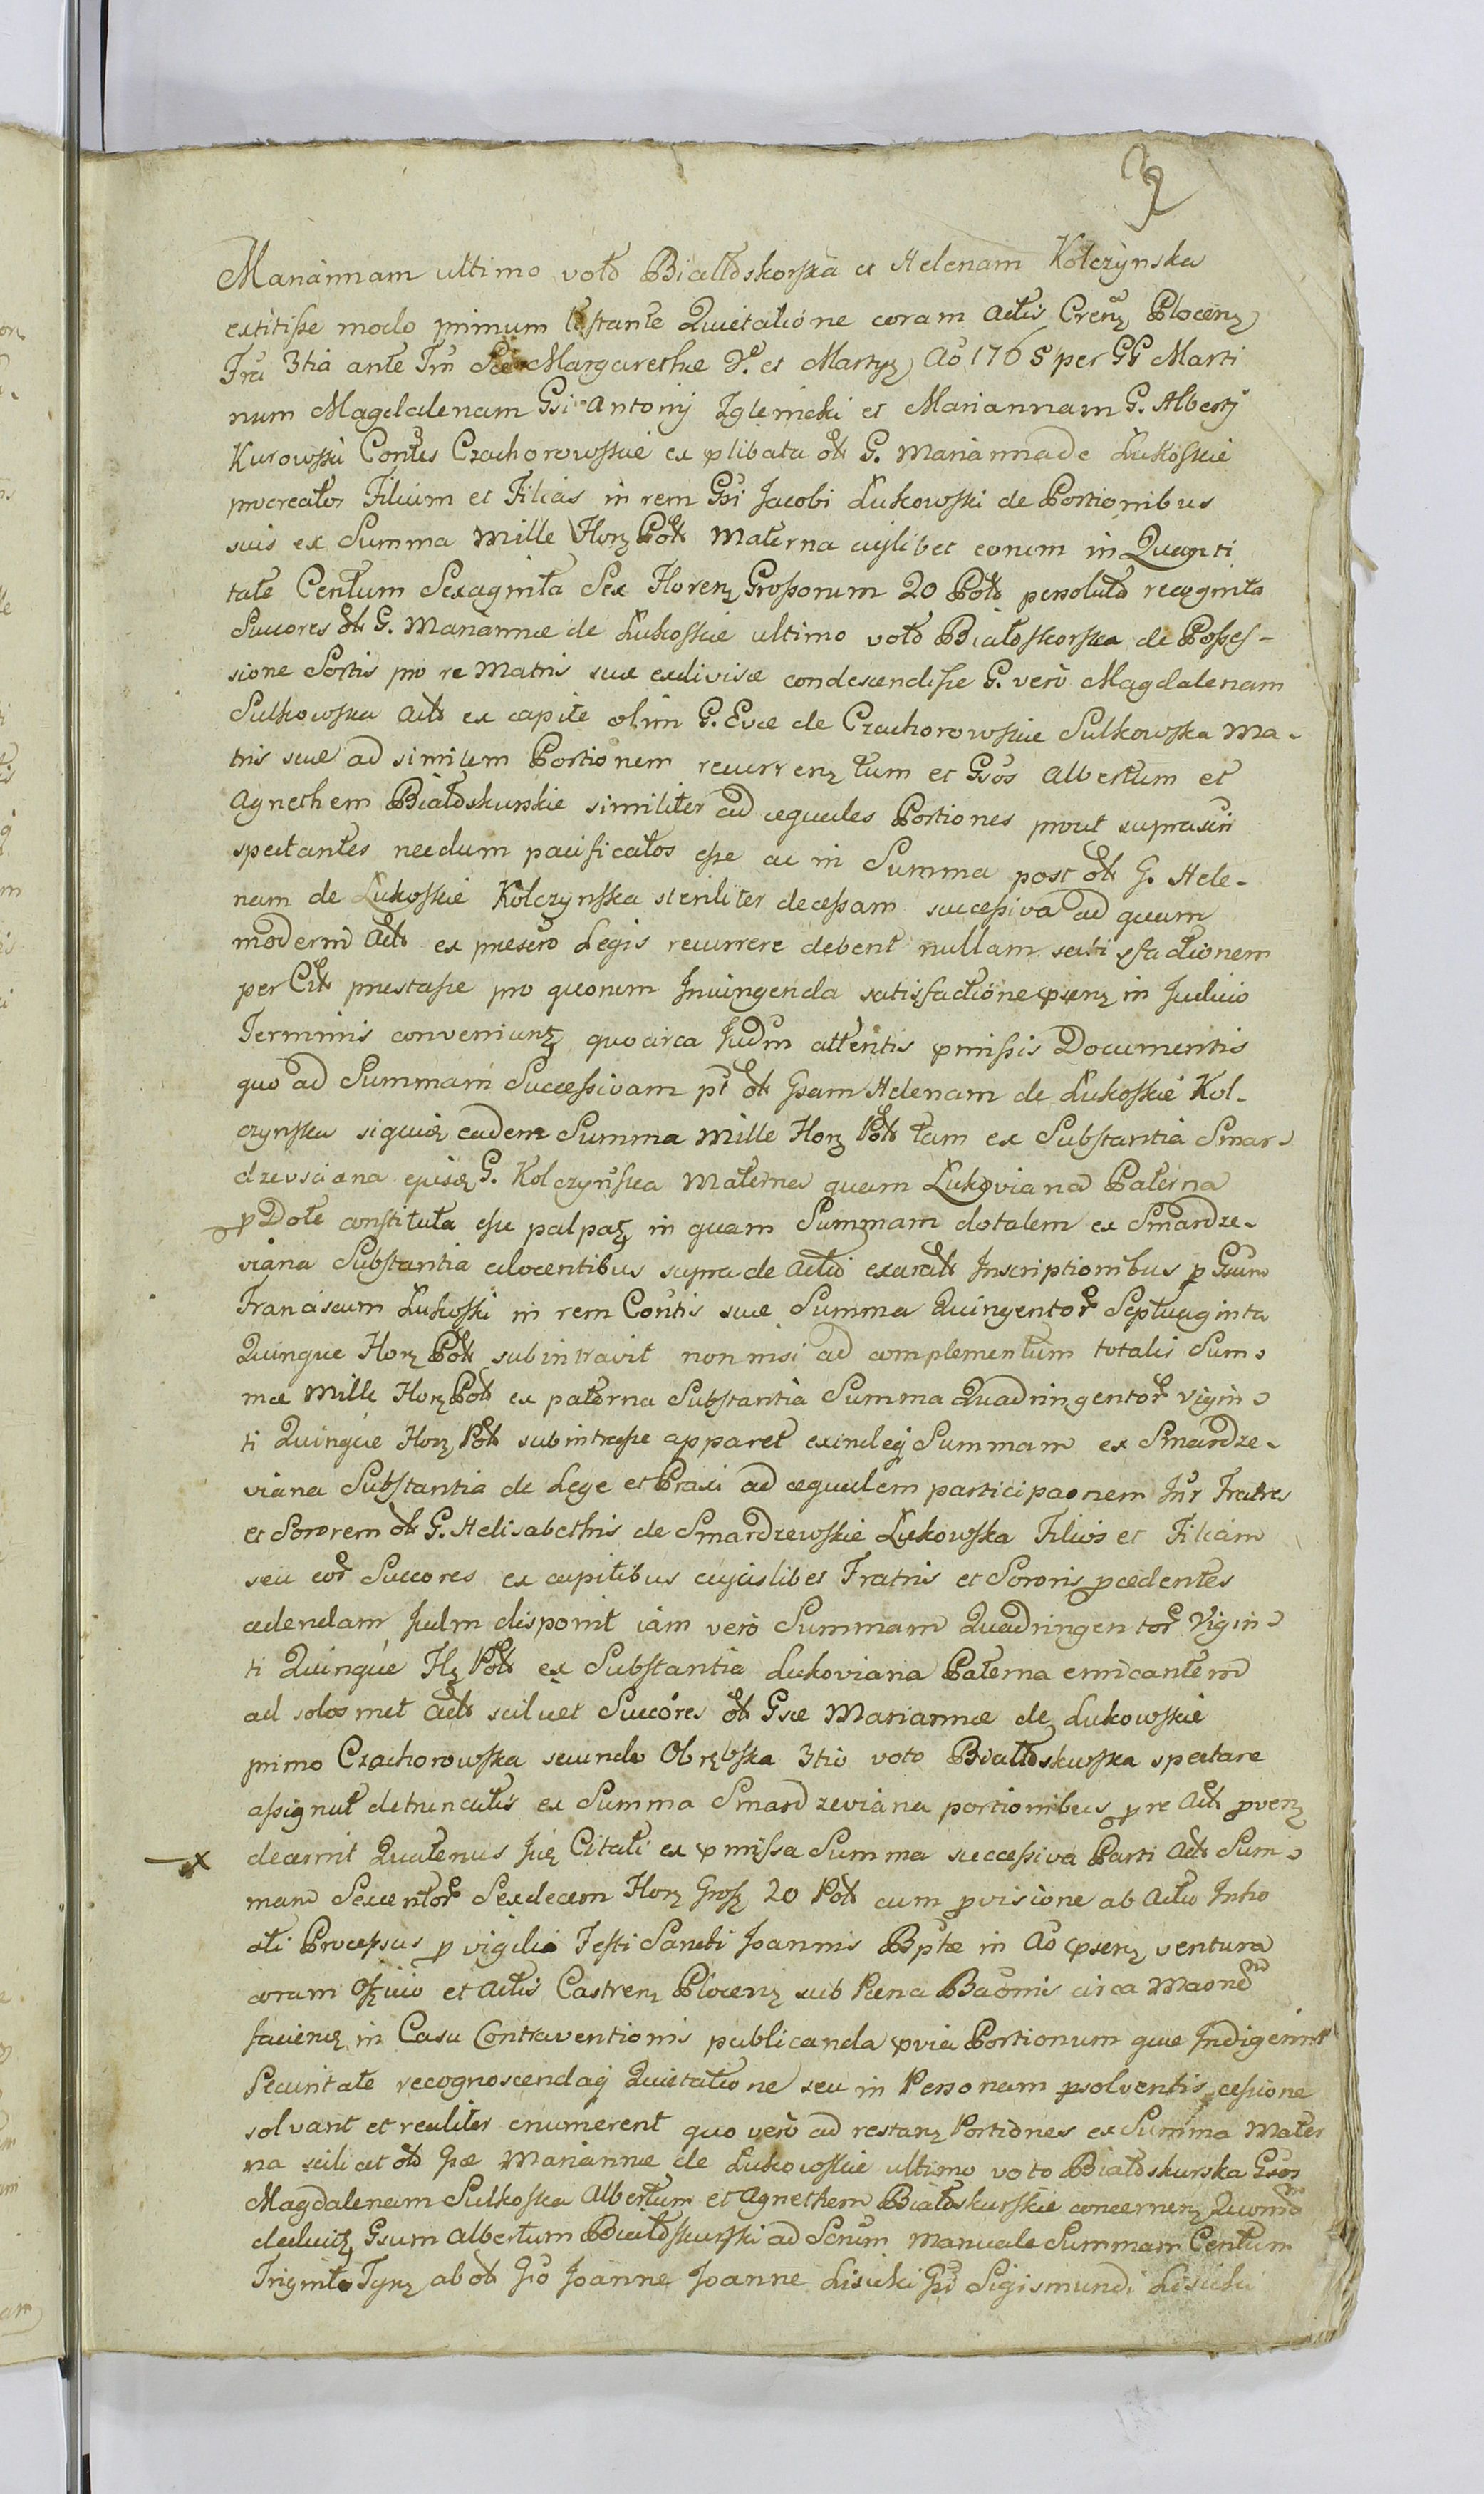 Mariannam ultimo voto Białłoskorska et Helenam Kolczynska
extitisse modo primum testante Quietatione coram Actis Crens Plocens
Fria 3tia ante Fm Sae Margarethae V. et Martys Ao 1765 per GG Marti
num Magdalenam Gsi Antonij Zglenicki et Mariannam G. Albertj
Kurowski Contes Czachorowskie ex plibata olt G. Marianna de Łukoskie
procreatos Filium et Filias in rem Gsi Jacobi Łukowski de Portionibus
suis ex Summa Mille Flor Polt Materna cujlibet eorum in Quanti
tate Centum Sexaginta Sex Florens Grossorum 20 Polt persoluto recognito
Succores olt G. Mariannae de Łukoskie ultimo voto Białoskorska de Posses-
sione Sortis pro re Matris suae exdivisae condescendisse G. vero Magdalenam
Sulkowska Act ex capite olim G. Evae de Czachorowskie Sulkowska Ma-
tris suae ad similem Portionem recurrens tum et Gsos Albertum et
Agnethem Białoskurskie similiter ad aequales Portiones prout suprascri
spectantes necdum pacificatos esse ac in Summa post olt G. Hele-
nam de Łukoskie Kolczynska steriliter decessam successiva ad quam
moderni Act ex praescro Legis recurrere debent nullam satisfactionem
per Cit praestasse pro quorum Injungenda satisfactione psens in Judicio
Terminis conveniuntr quocirca Judm attentis pmissis Documentis
quo ad Summam Successivam pt olt Gsam Helenam de Łukoskie Kol-
czynska siquid eadem Summa Mille Flor Polt tam ex Substantia Smar-
dzevsciana ejusd G. Kolczynska Materna quam Łukoviana Paterna
p Dote constituta esse palpatr in quam Summam dotalem ex Smardze-
viana Substantia edocentibus supra de Acto exarat Inscriptionibus p Gsum
Franciscum Łukoski in rem Contis suae Summa Quingentor Septuaginta
Quinque Flor Polt subintravit non nisi ad complementum totalis Sum-
mae Mille Flor Polt ex paterna Substantia Summa Quadringentor Vigin-
ti Quinque Flor Polt subintrasse apparet exindeq Summam ex Smardze-
viana Substantia de Lege et Praxi ad aequalem participaonem Intr Fratres
et Sororem olt G. Helisabethis de Smardzewskie Łukowska Filios et Filiam
seu eor Succores ex capitibus cujuslibet Fratris et Sororis pcedentes
cedendam Judm disponit iam vero Summam Quadringentor Vigin-
ti Quinque Fl Polt ex Substantia Łukoviana Paterna emicantem
ad solos met Act scilicet Succores olt Gsae Mariannae de Łukowskie
primo Czachorowska secundo Obrębska 3tio voto Białłoskurska spectare
assignat detruncatis ex Summa Smardzeviana portionibus p re Act pvens
decernit Quatenus Jur Citati ex pmissa Summa successiva Parti Act Sum-
mam Sexcentor Sexdecem Flor Gross 20 Polt cum pvisione ab Actu Intro
oti Processus p vigilia Festi Sancti Joannis Bptae in Ao psens ventura
coram Officio et Actis Castrens Plocens sub Poena Baonis circa Maonem
faciend in Casu Contraventionis publicanda pvia Portionum quae Indigerint
Securitate recognoscendaq Quietatione seu in Personam psolventis cessione
solvant et realiter enumerent quo vero ad restans Portiones ex Summa Mater
na scilicet olt Gsae Mariannae de Łukowskie ultimo voto Białoskurska Gsos
Magdalenam Sulkoska Albertum et Agnethem Białoskurskie concernens Quoniam
deducitr Gsum Albertum Białoskurski ad Scrum Manuale Summam Centum
Triginta Tyns ab olt Gso Joanne Joanne Lisicki Gsi Sigismundi Lisicki